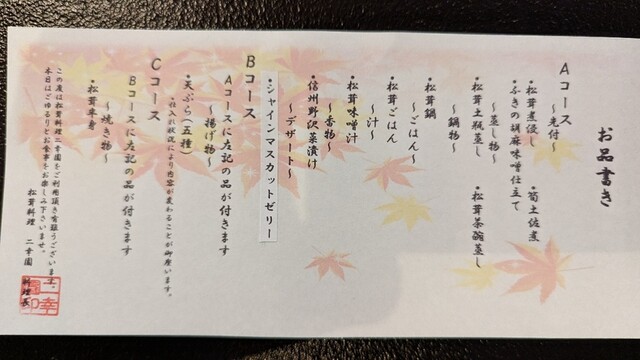 お品書き
Aコース
～先付～
・松茸煮浸し　・筍土佐煮
・ふきの胡麻味噌仕立て
～蒸し物～
・松茸土瓶蒸し　・松茸茶碗蒸し
～鍋物～
・松茸鍋
～ごはん～
・松茸ごはん
～汁～
・松茸味噌汁
～香物～
・信州野沢菜漬け
～デザート～
・シャインマスカットゼリー
Bコース
Aコースに左記の品が付きます
～揚げ物～
・天ぷら（五種）
・仕入れ状況により内容が変わることが御座います。
Cコース
Bコースに左記の品が付きます
～焼き物～
・松茸半身
この度は松茸料理二幸園をご利用頂き有難うございます。
本日はごゆるりとお食事をお楽しみ下さいませ。
松茸料理　二幸園
料理長